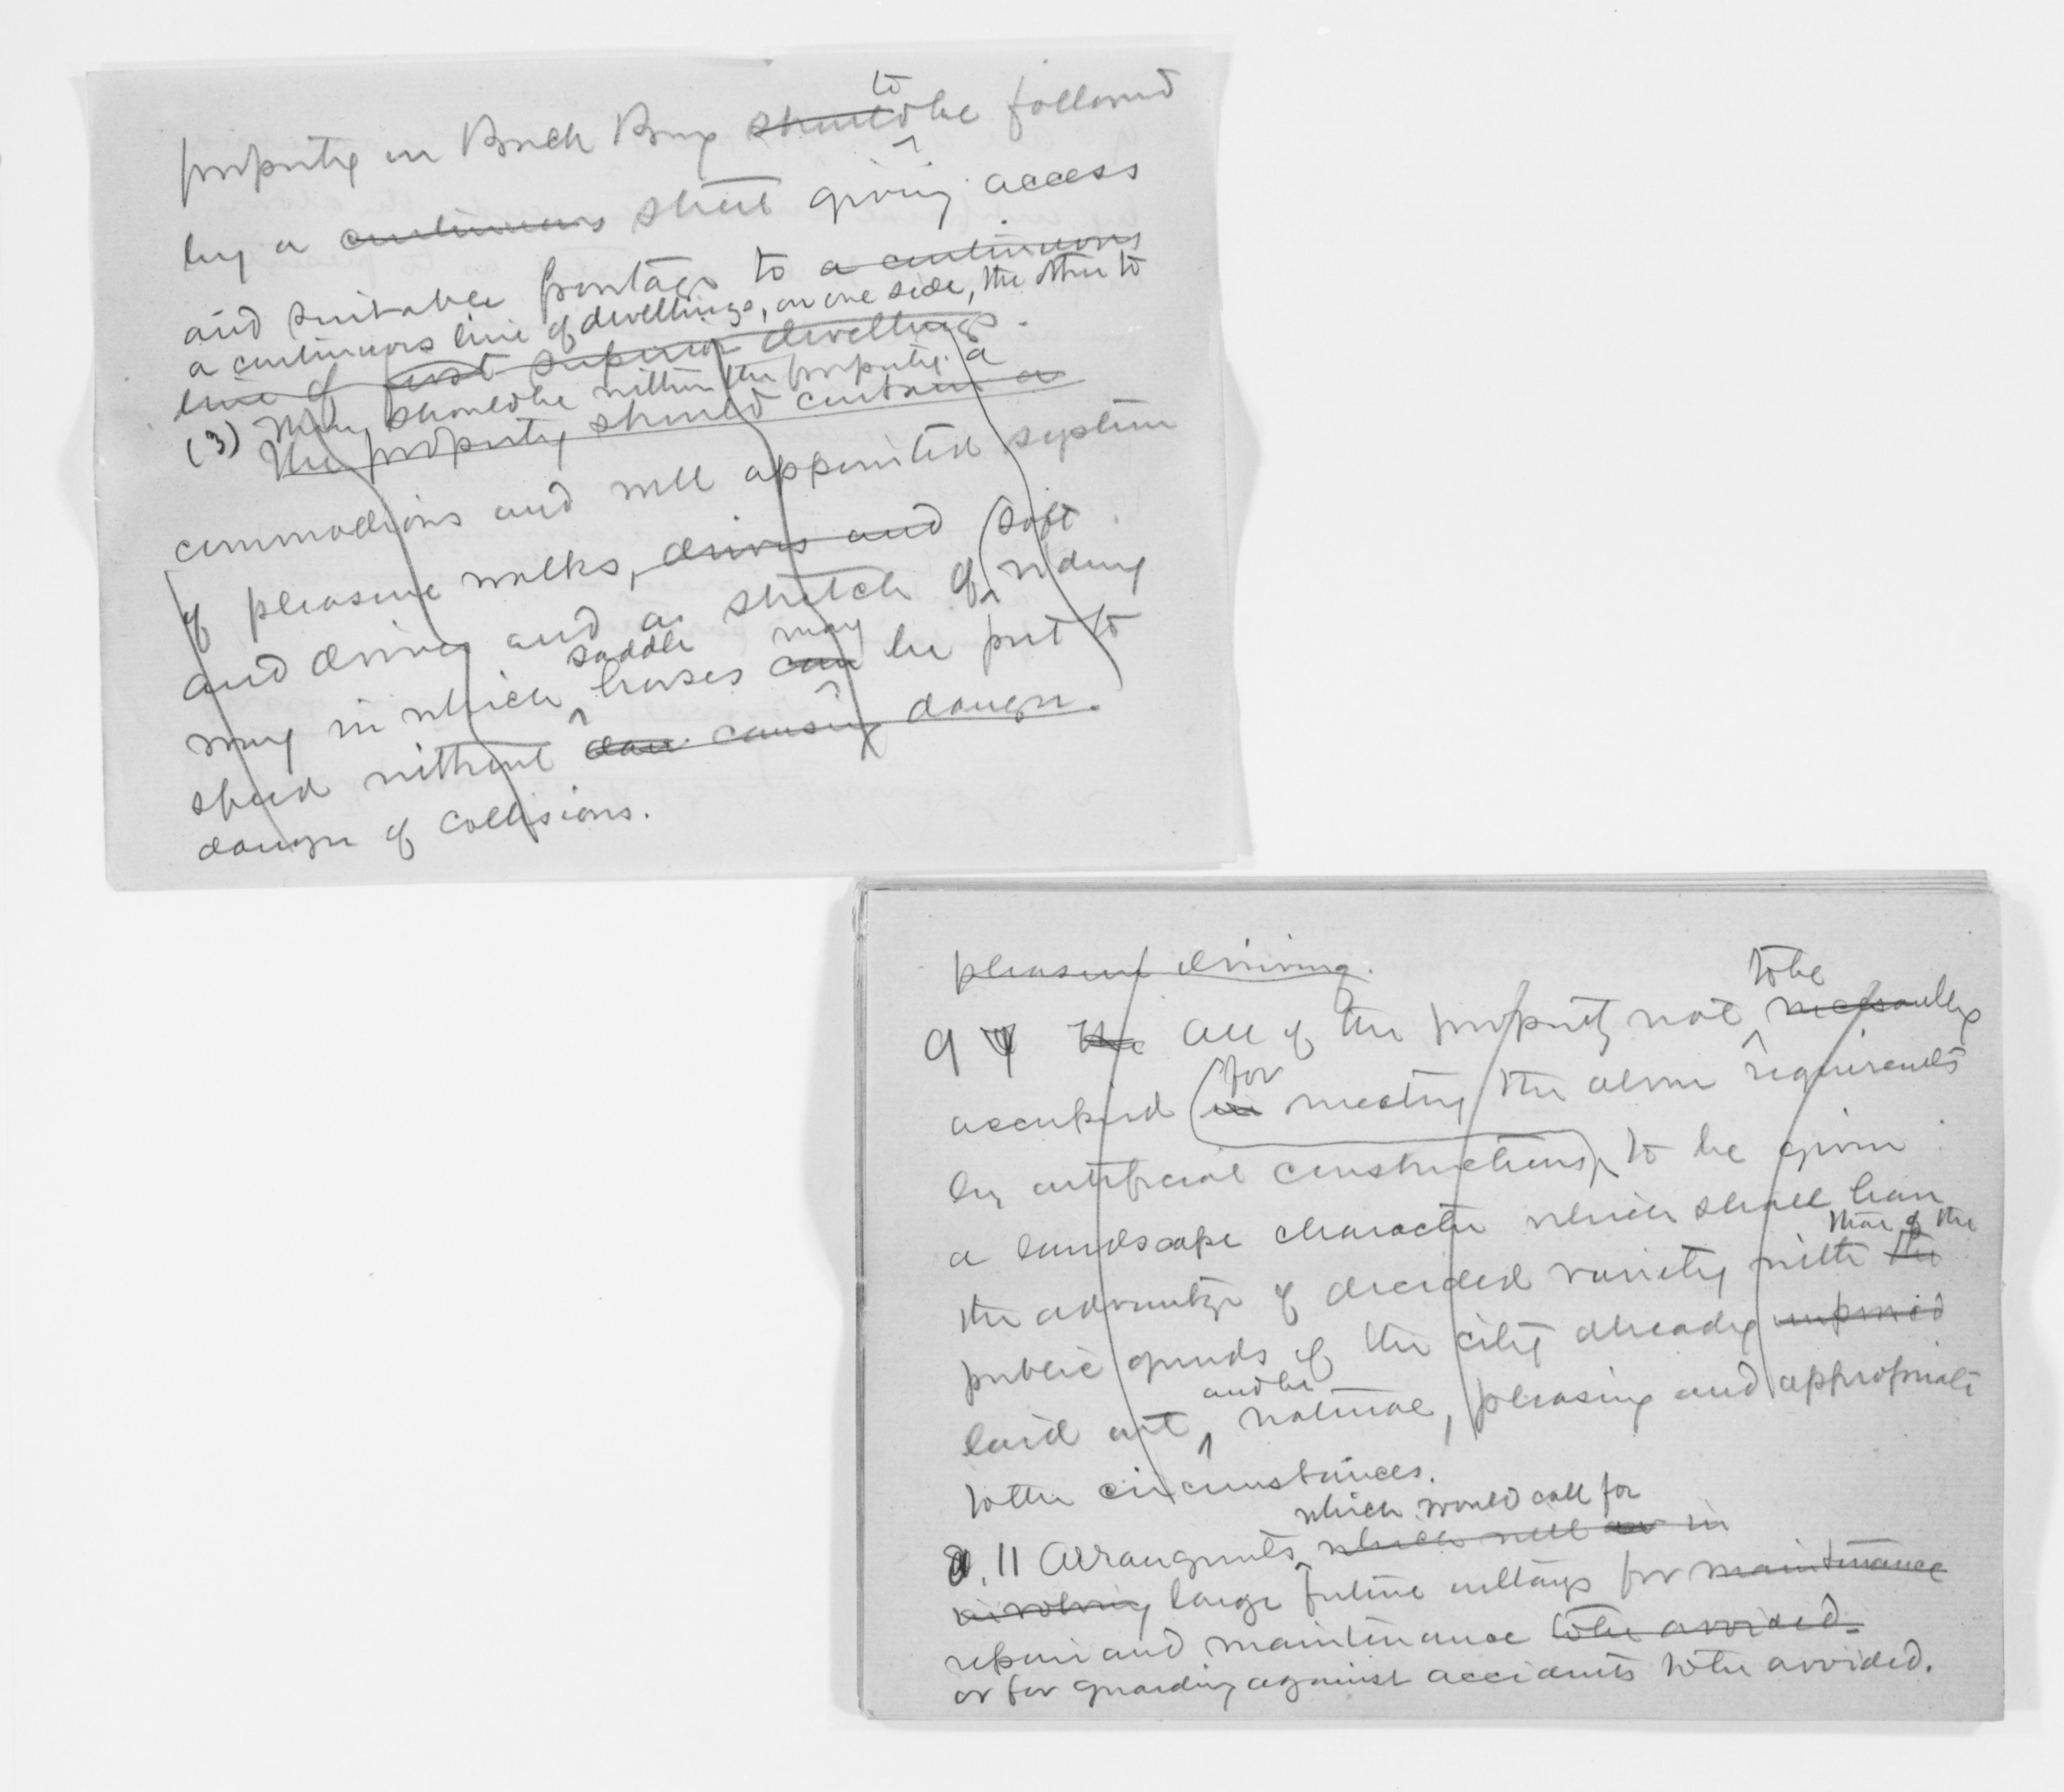 to
property in Back Bay should be followed
by a continuous street giving access
and suitable frontage to a continuous
a continuous line of dwellings, on one side, the other to
line of first superior dwellings.
(3) There should be within the property a
The property should contain a
commodious and well appointed system
of pleasure walks, drives and soft
and drives and a stretch of riding
saddle may
way in which horses can be put to
speed without dan causing danger.
danger of collisions.
pleasure driving.
to be
9 The all of the property not necessarily
for
occupied in meeting the above requirements
by artificial constructions, to be given
a landscape character which shall have
that of the
the advantage of decided variety with the
public grounds of the city already improved
and be
laid out, natural, pleasing and appropriate
to the circumstances.
which would call for
11 Arrangements which will in
involving large future outlays for maintenance
repair and maintenance to be avoided.
or for guarding against accidents to be avoided.